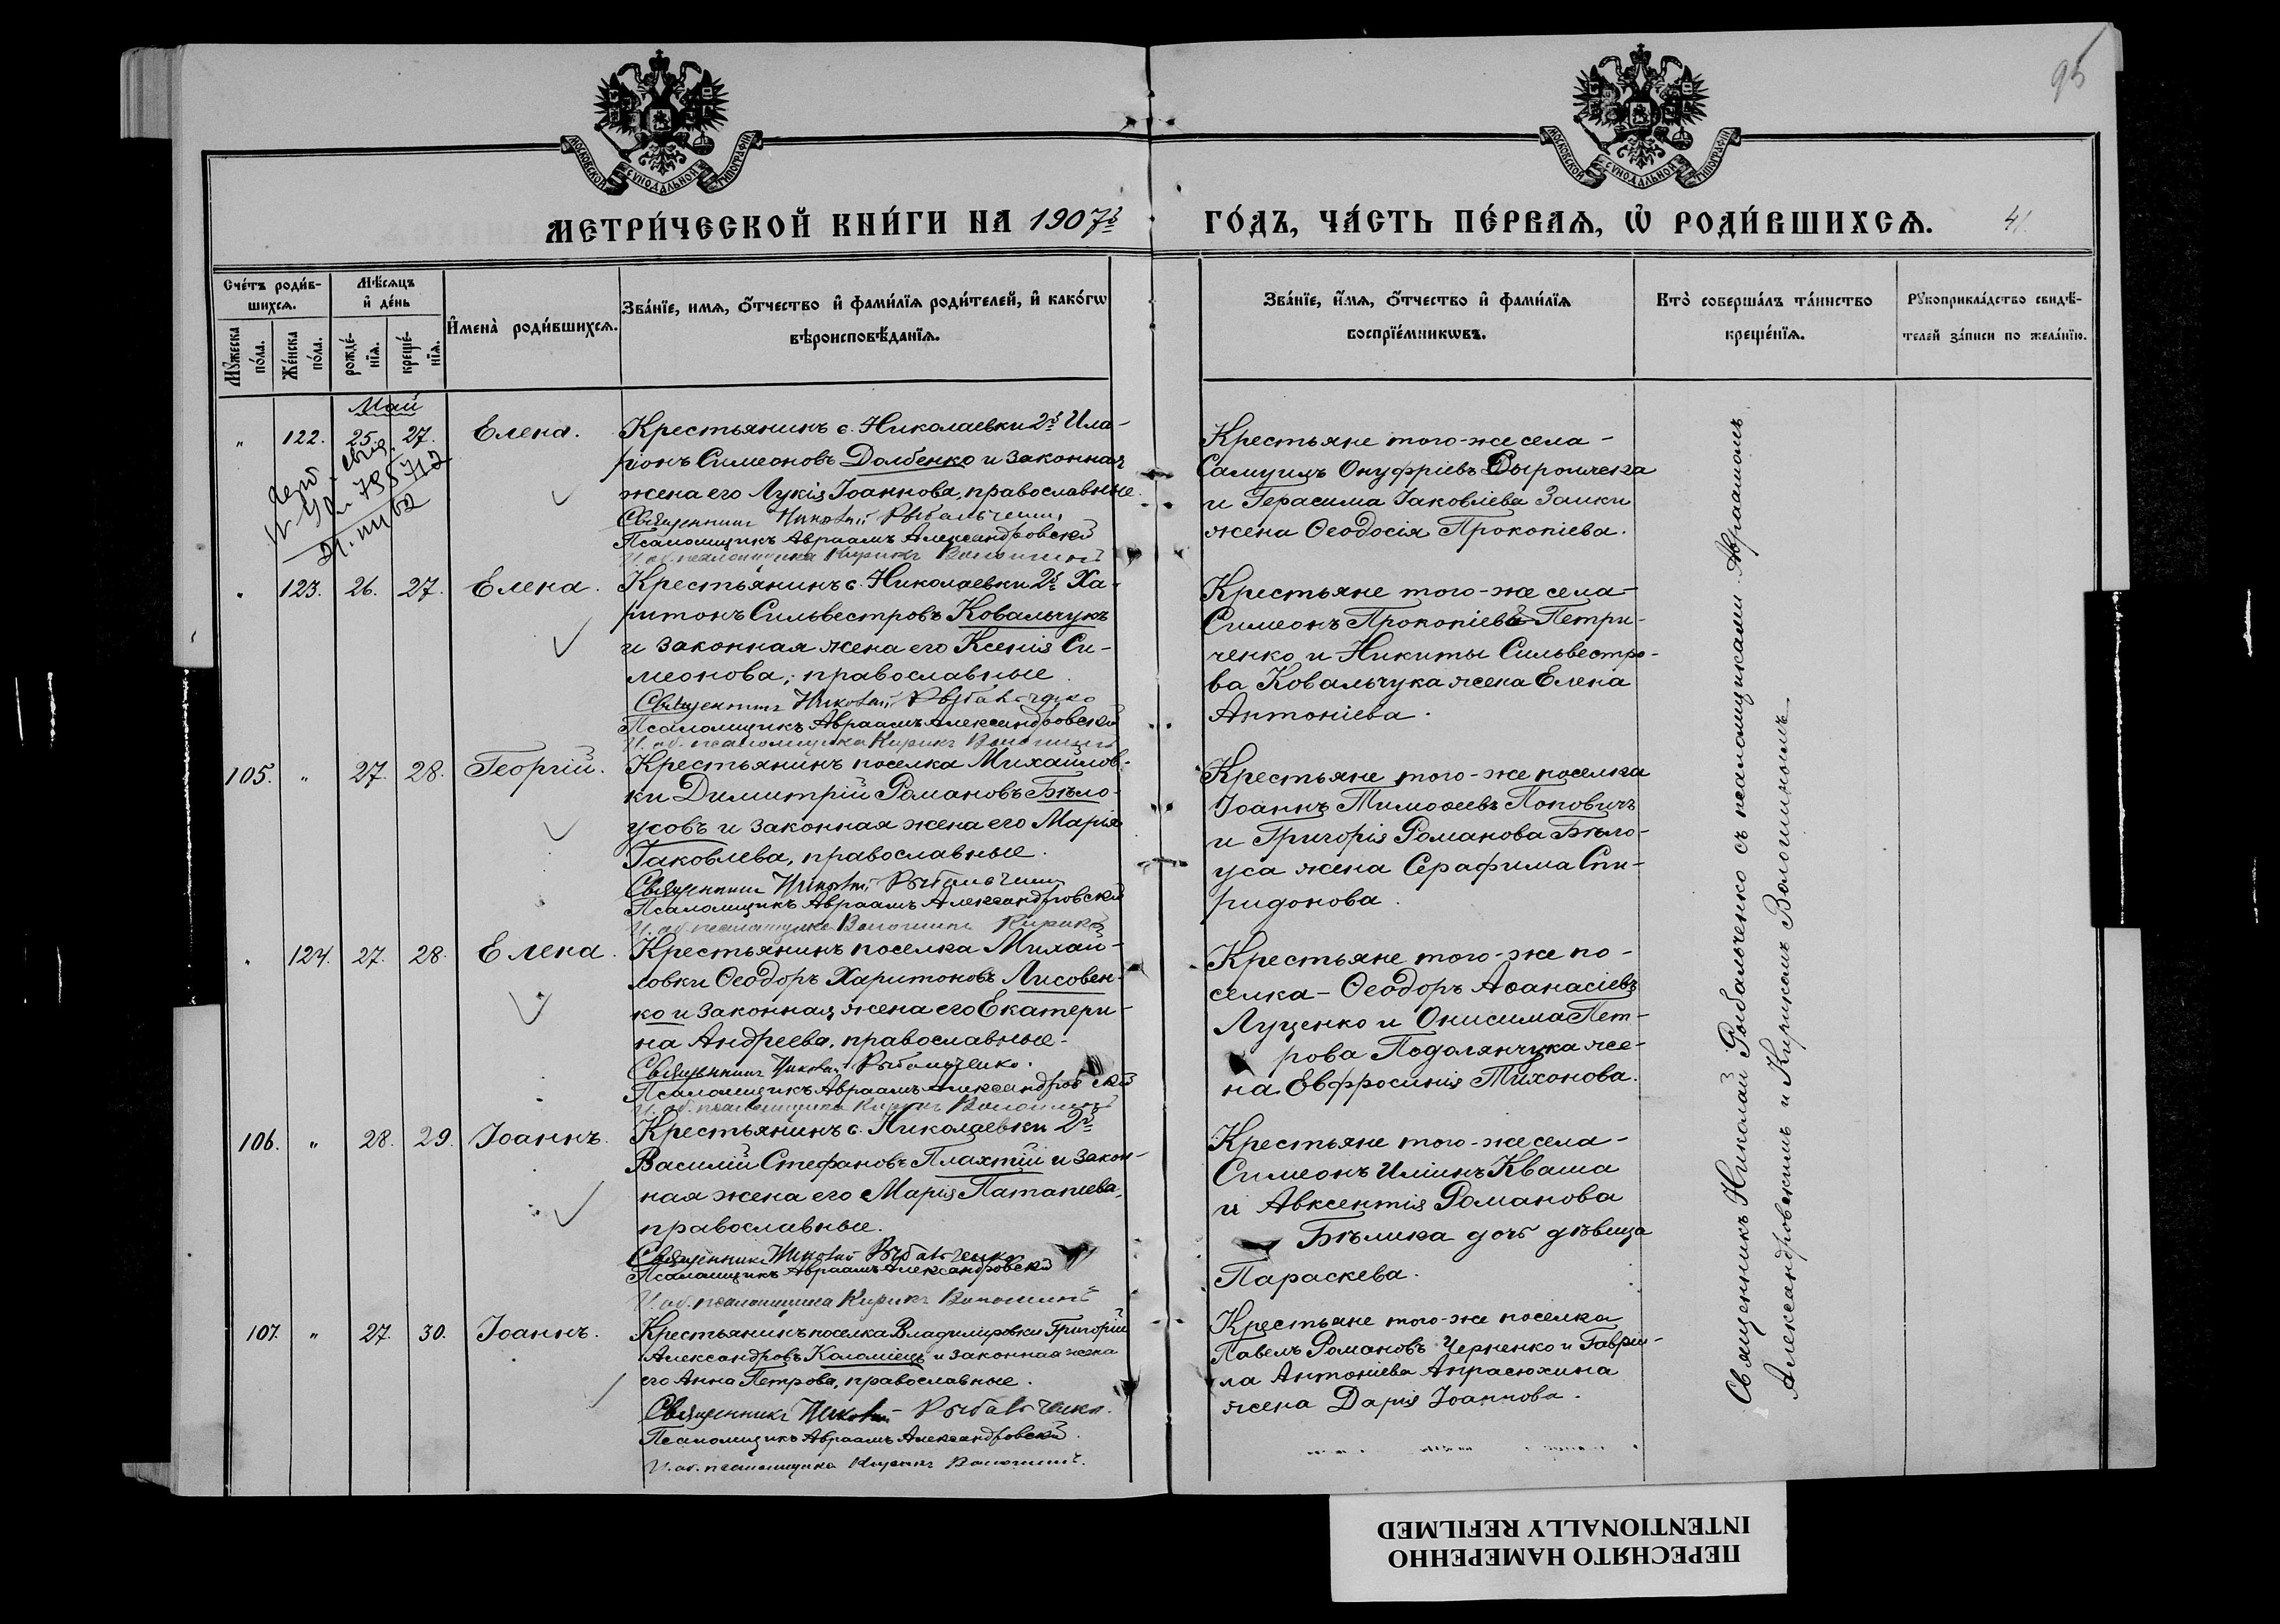 95
МОСКОВСКОЙ СѴНОДАЛЬНОЙ ТИПОГРАФІИ
МОСКОВСКОЙ СѴНОДАЛЬНОЙ ТИПОГРАФІИ
МЕТРИ́ЧЕСКОЙ КНИ́ГИ НА 1907й ГО́ДЪ, ЧА́СТЬ ПЕ́РВАѦ, Ѡ҆ РОДИ́ВШИХСѦ. 41.
Сче́тъ роди́в-
шихсѧ.
Мꙋ́жеска по́ла.
Же́нска по́ла.
Мѣ́сѧцъ и҆ де́нь
рожде́-нїѧ.
креще́-нїѧ.
И҆мена̀ роди́вшихсѧ.
Зва́нїе, имѧ, ѻ҆́тчество и҆ фами́лїѧ роди́телей, и҆ како́гѡ
вѣроисповѣ́данїѧ.
Зва́нїе, и҆́мѧ, ѻ҆́тчество и҆ фами́лїѧ
воспрїе́мникѡвъ.
Кто̀ соверша́лъ та́инство
креще́нїѧ.
Рꙋкоприкла́дство свидѣ́-
телей за́писи по жела́нїю.
Май
„ 122. 25. 27. Елена.
Крестьянинъ с. Николаевки 2й Ила-
ріонъ Симеоновъ Долбенко и законная
жена его Лукія Іоаннова, православные.
Священникъ Николай Рыбальченко
Псаломщикъ Авраамъ Александровскій
И. об. псаломщика Кирикъ Волошинъ
Крестьяне того-же села-
Самуилъ Онуфріевъ Сыроичека
и Герасима Іаковлева Заики
жена Ѳеодосія Прокопіева.
„ 123. 26. 27. Елена.
Крестьянинъ с. Николаевки 2й Ха-
ритонъ Сильвестровъ Ковальчукъ
и законная жена его Ксенія Си-
меонова, православные.
Священникъ Николай Рыбальченко
Псаломщикъ Авраамъ Александровскій
И. об. псаломщика Кирикъ Волошинъ
Крестьяне того-же села-
Симеонъ Прокопіевъ Петри-
ченко и Никиты Сильвестро-
ва Ковальчука жена Елена
Антоніева.
105. „ 27. 28. Георгій.
Крестьянинъ поселка Михайлов-
ки Димитрій Романовъ Бѣло-
усовъ и законная жена его Марія
Іаковлева, православные.
Священникъ Николай Рыбальченко
Псаломщикъ Авраамъ Александровскій
И. об. псаломщика Волошинъ Кирикъ
Крестьяне того-же поселка
Іоаннъ Тимоѳеевъ Поповичъ
и Григорія Романова Бѣло-
уса жена Серафима Спи-
ридонова.
„ 124. 27. 28. Елена.
Крестьянинъ поселка Михай-
ловки Ѳеодоръ Харитоновъ Лисовен-
ко и законная жена его Екатери-
на Андреева, православные.
Священникъ Николай Рыбальченко.
Псаломщикъ Авраамъ Александровскій
И. об. псаломщика Кирикъ Волошинъ
Крестьяне того-же по-
селка- Ѳеодоръ Аѳанасіевъ
Луценко и Онисима Пет-
рова Подолянчука же-
на Евфросинія Тихонова.
106. „ 28. 29. Іоаннъ.
Крестьянинъ с. Николаевки 2й
Василій Стефановъ Плахтій и закон-
ная жена его Марія Патапіева,
православные.
Священникъ Николай Рыбальченко
Псаломщикъ Авраамъ Александровскій
И. об. псаломщика Кирикъ Волошинъ
Крестьяне того-же села-
Симеонъ Иліинъ Кваша
и Авксентія Романова
Бѣлика дочь дѣвица
Параскева.
107. „ 27. 30. Іоаннъ.
Крестьянинъ поселка Владимировки Григорій
Александровъ Коломіецъ и законная жена
его Анна Петрова, православные.
Священникъ Николай Рыбальченко.
Псаломщикъ Авраамъ Александровскій.
И. об. псаломщика Кирикъ Волошинъ.
Крестьяне того-же поселка
Павелъ Романовъ Черненко и Гаври-
ла Антоніева Апрасюхина
жена Дарія Іоаннова.
Священникъ Николай Рыбальченко съ псаломщиками Авраамомъ
Александровскимъ и Кирикомъ Волошинымъ.
ПЕРЕСНЯТО НАМЕРЕННО
INTENTIONALLY REFILMED